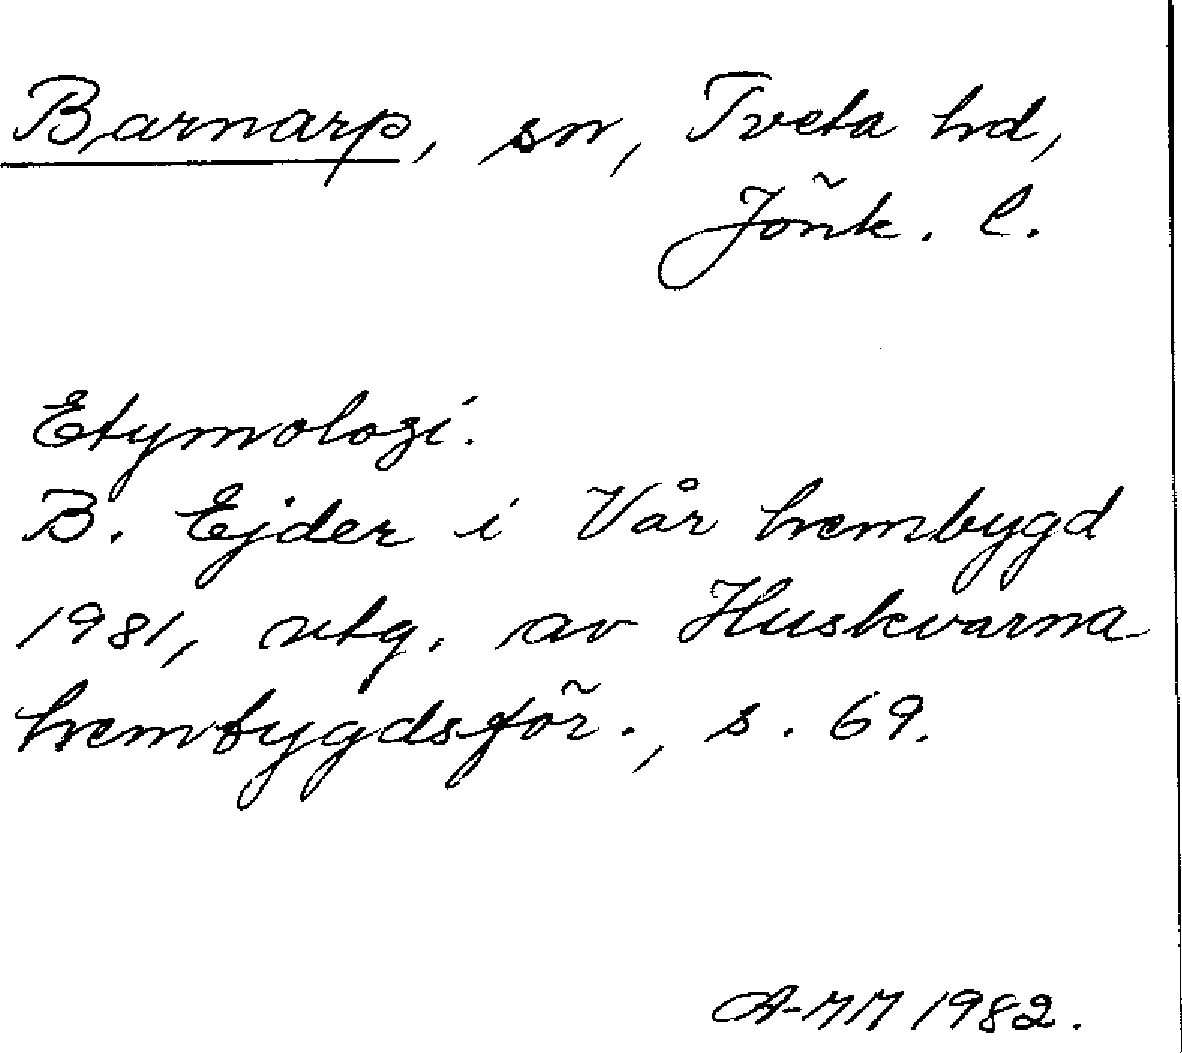 Barnarp, sn, Tveta hd,
Jönk. l.
Etymologi.
B. Ejder i Vår hembygd
1981, utg. av Huskvarna
hembygdsför., s. 69.
A-MM 1982.